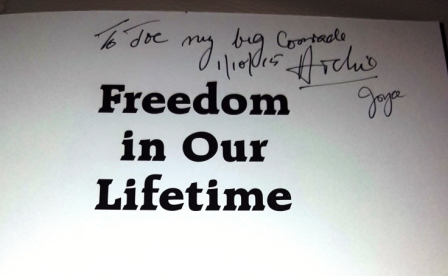 To Joe my big Comrade
1/10/15 Archie
Joyce
Freedom
in Our
Lifetime